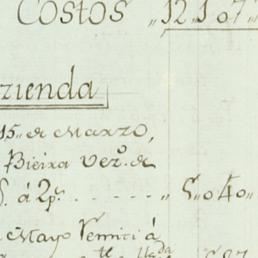 Costos „ 12„107„
zienda
15„ de Marzo,
Bieixa vezº. de
S. á 2p.s ...... „ 5„040„
Mayo Remiti á